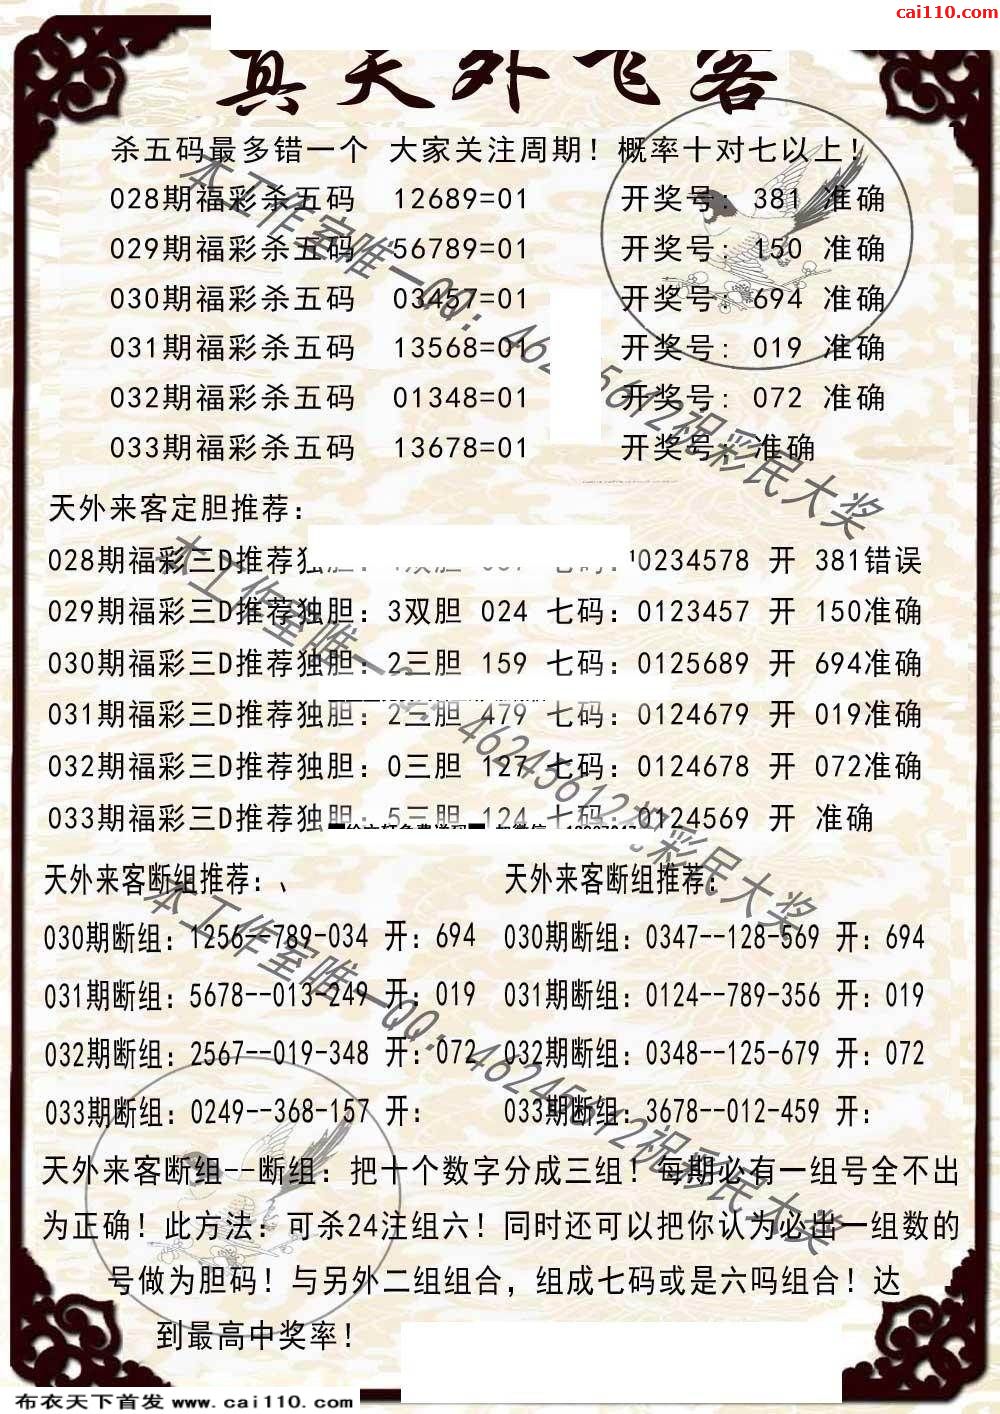 cai110.com
真天外飞客
杀五码最多错一个 大家关注周期！概率十对七以上！
028期福彩杀五码 12689=01 开奖号：381 准确
029期福彩杀五码 56789=01 开奖号：150 准确
030期福彩杀五码 03457=01 开奖号：694 准确
031期福彩杀五码 13568=01 开奖号：019 准确
032期福彩杀五码 01348=01 开奖号：072 准确
033期福彩杀五码 13678=01 开奖号：准确
天外来客定胆推荐：
028期福彩三D推荐独胆： 0234578 开 381错误
029期福彩三D推荐独胆：3双胆 024 七码：0123457 开 150准确
030期福彩三D推荐独胆：2三胆 159 七码：0125689 开 694准确
031期福彩三D推荐独胆：2三胆 479 七码：0124679 开 019准确
032期福彩三D推荐独胆：0三胆 127 七码：0124678 开 072准确
033期福彩三D推荐独胆：5三胆 124 七码：0124569 开 准确
天外来客断组推荐：、 天外来客断组推荐：
030期断组：1256--789-034 开：694 030期断组：0347--128-569 开：694
031期断组：5678--013-249 开：019 031期断组：0124--789-356 开：019
032期断组：2567--019-348 开：072 032期断组：0348--125-679 开：072
033期断组：0249--368-157 开： 033期断组：3678--012-459 开：
天外来客断组--断组：把十个数字分成三组！每期必有一组号全不出
为正确！此方法：可杀24注组六！同时还可以把你认为必出一组数的
号做为胆码！与另外二组组合，组成七码或是六吗组合！达
到最高中奖率！
本工作室唯一QQ：46245612祝彩民大奖
本工作室唯一 46245612祝彩民大奖
本工作室唯一QQ：46245612祝彩民大奖
布衣天下首发 www.cai110.com